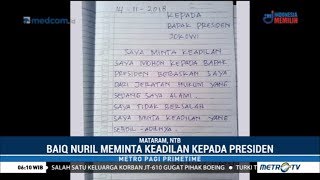 medcom.id
INDONESIA
MEMILIH
14-11-2018
KEPADA
BAPAK PRESIDEN
JOKOWI
SAYA MINTA KEADILAN
SAYA MOHON KEPADA BAPAK
PRESIDEN BEBASKAN SAYA
DARI JERATAN HUKUM YANG
SEDANG SAYA ALAMI
SAYA TIDAK BERSALAH
SAYA MINTA KEADILAN YANG
SEADIL-ADILNYA
MATARAM, NTB
BAIQ NURIL MEMINTA KEADILAN KEPADA PRESIDEN
METRO PAGI PRIMETIME
06:10 WIB
SALAH SATU KELUARGA KORBAN JT-610 GUGAT PIHAK BOEING
METRO TV